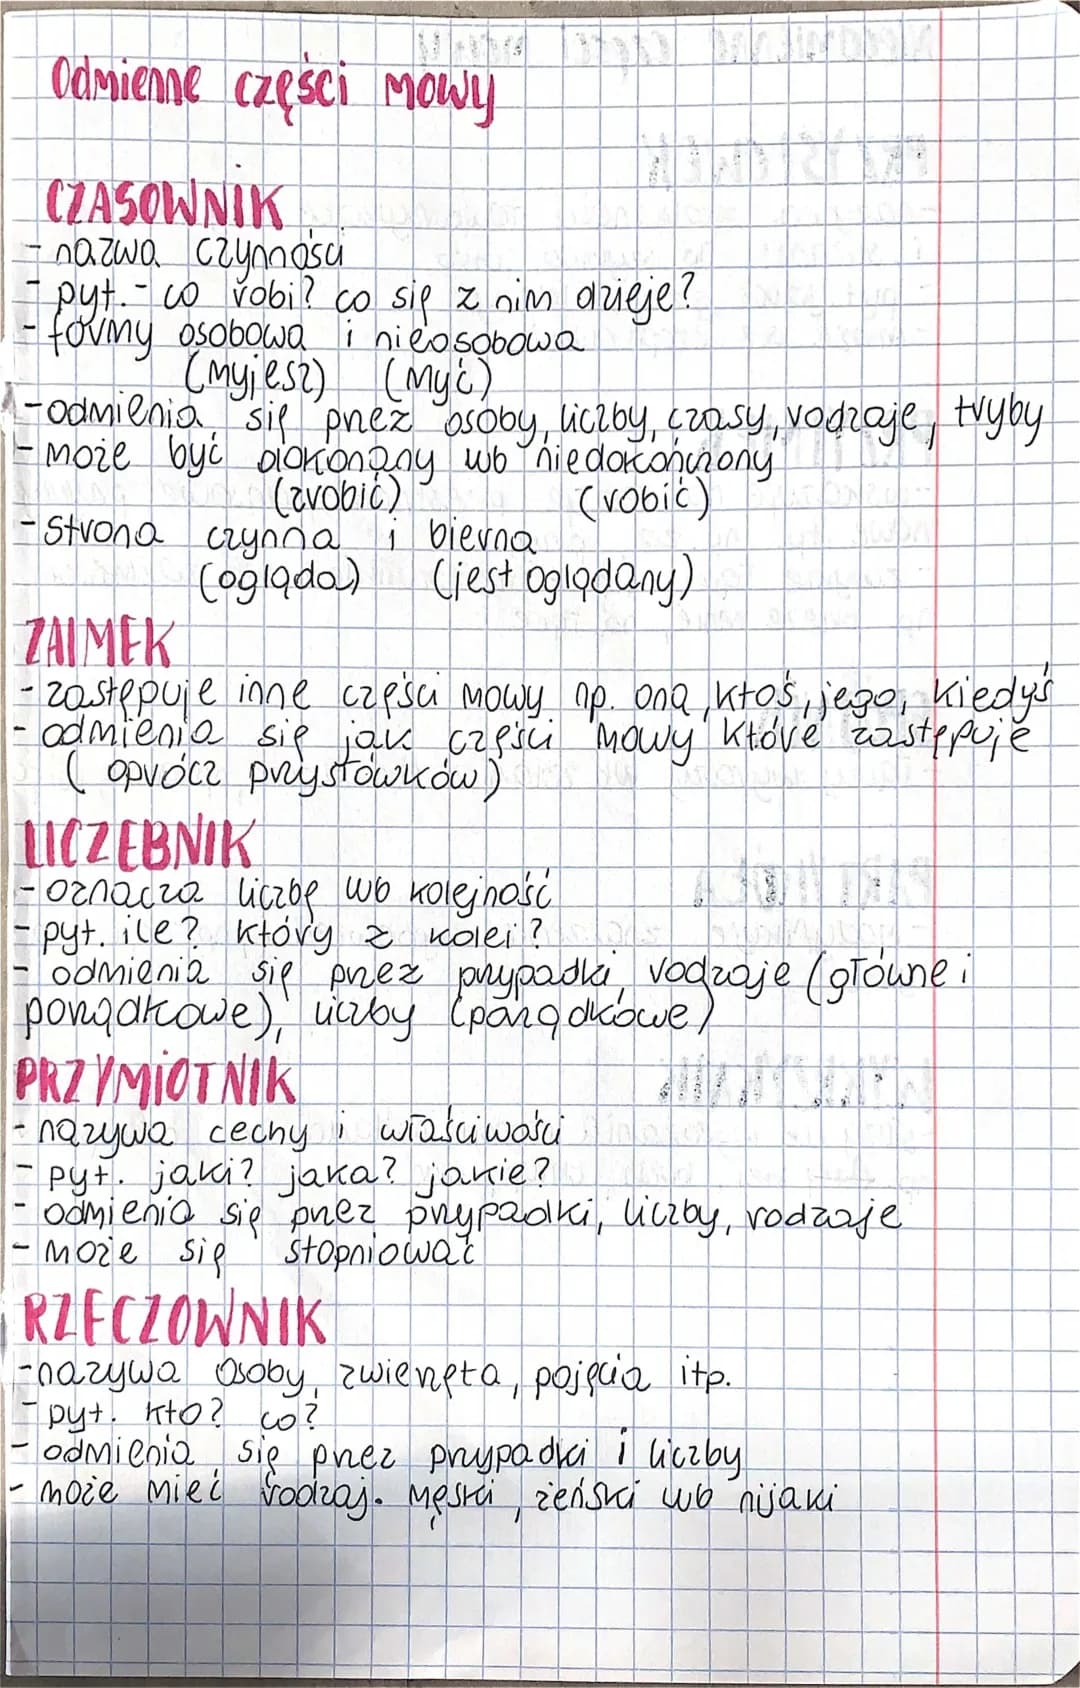 Odmienne części mowy
CZASOWNIK
- nazwa czynności
- pyt. - co robi? co się z nim dzieje?
- formy osobowa i nieosobowa
(myjesz) (myć)
- odmienia się przez osoby, liczby, czasy, rodzaje, tryby
- może być dokonany lub niedokończony
(zrobić) (robić)
- strona czynna i bierna
(ogląda) (jest oglądany)
ZAIMEK
- zastępuje inne części mowy np. ona, ktoś, jego, kiedyś
- odmienia się jak części mowy które zastępuje
(oprócz przysłówków)
LICZEBNIK
- oznacza liczbę lub kolejność
- pyt. ile? który z kolei?
- odmienia się przez przypadki, rodzaje (główne i
porządkowe), liczby (porządkowe)
PRZYMIOTNIK
- nazywa cechy i właściwości
- pyt. jaki? jaka? jakie?
- odmienia się przez przypadki, liczby, rodzaje
- może się stopniować
RZECZOWNIK
- nazywa osoby, zwierzęta, pojęcia itp.
- pyt. kto? co?
- odmienia się przez przypadki i liczby
- może mieć rodzaj. męski, żeński lub nijaki